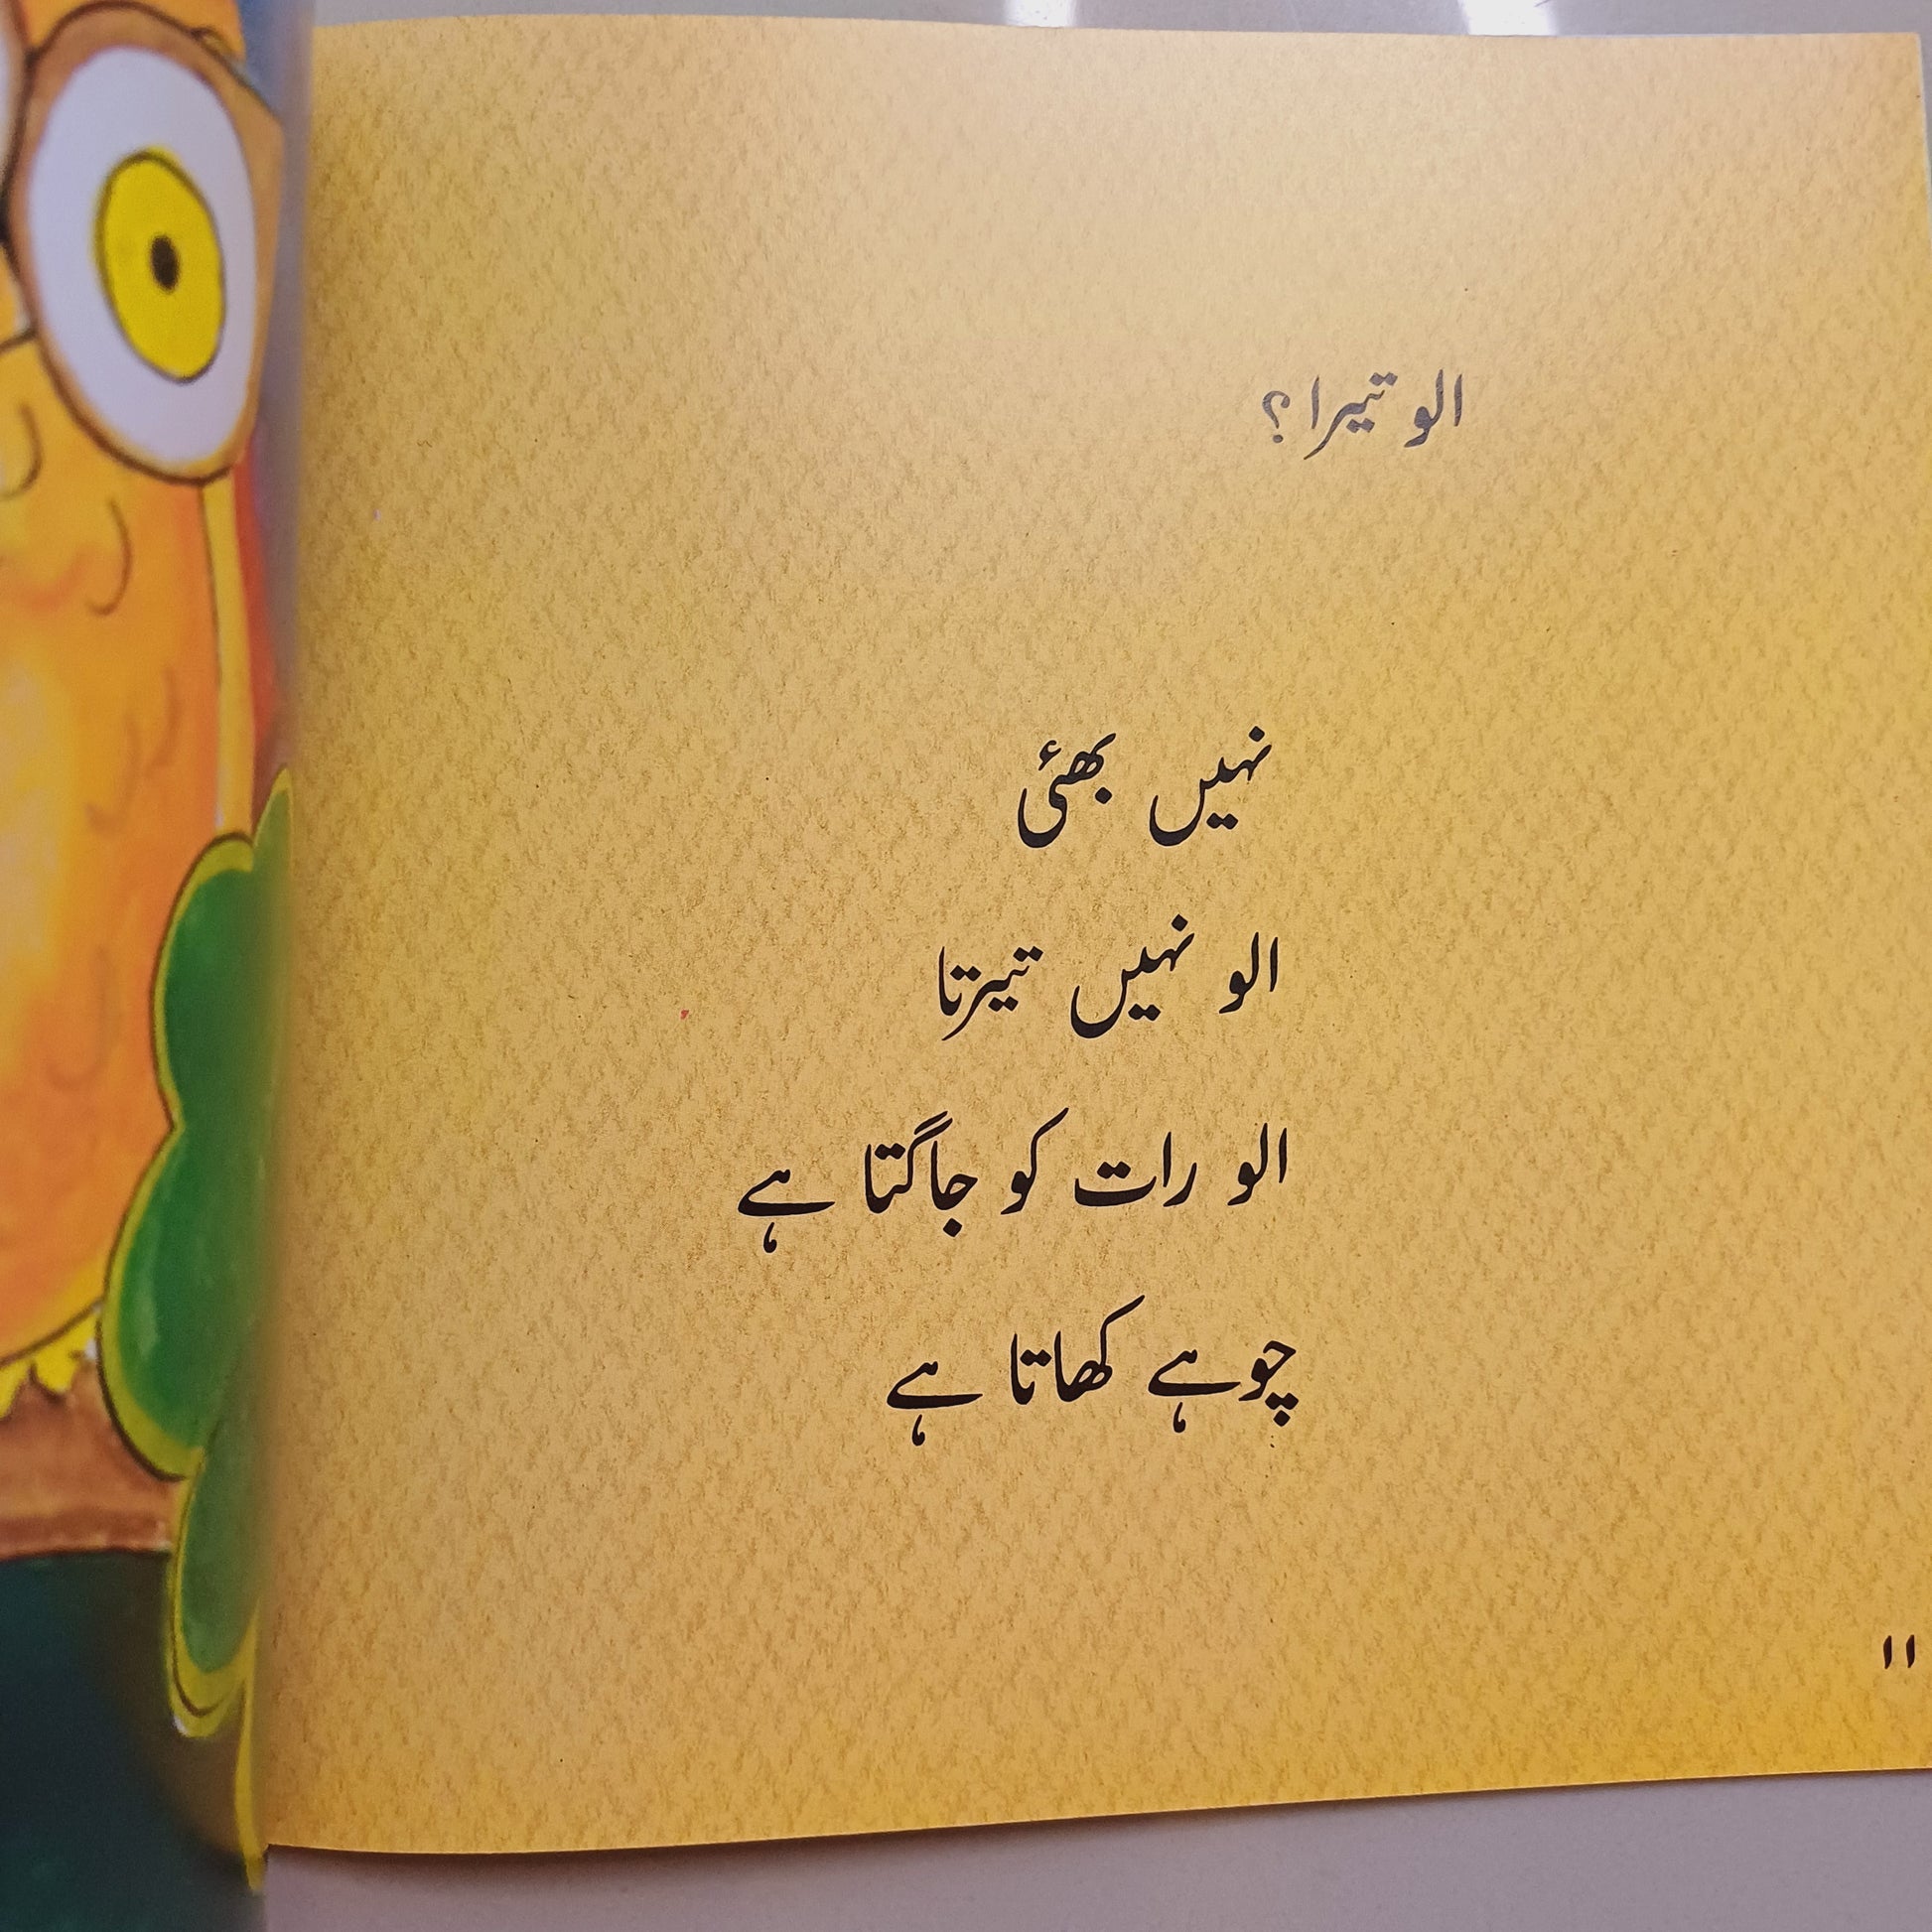 الو تیرا؟
نہیں بھئی
الو نہیں تیرتا
الو رات کو جاگتا ہے
چوہے کھاتا ہے
۱۱